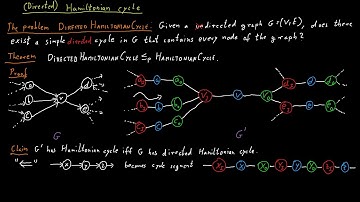 (Directed) Hamiltonian cycle
The problem DIRECTEDHAMILTONIANCYCLE: Given a undirected graph G=(V,E), does there
exist a simple directed cycle in G that contains every node of the graph?
Theorem DIRECTEDHAMILTONIANCYCLE ≤p HAMILTONIANCYCLE.
Proof
G G'
Claim G' has Hamiltonian cycle iff G has directed Hamiltonian cycle.
"⇐" x y z becomes cycle segment